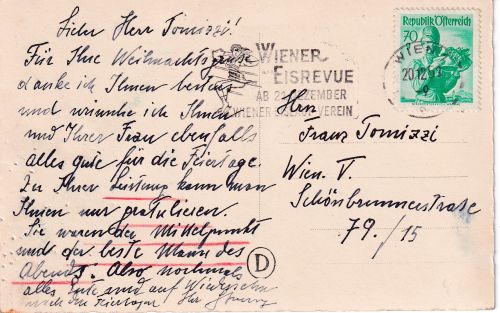 Lieber Herr Tomizzi!
Für Ihre Weihnachtsgrüße
danke ich Ihnen bestens
und wünsche ich Ihnen
und Ihrer Frau ebenfalls
alles gute für die Feiertage.
Zu Ihrer Leistung kann man
Ihnen nur gratulieren.
Sie waren der Mittelpunkt
und der beste Mann des
Abends. Also nochmals
alles Gute und auf Wiedersehn
nach den Feiertagen Ihr
WIENER
EISREVUE
AB 21. DEZEMBER
WIENER EISLAUFVEREIN
Republik Österreich
70
WIEN
20.12.
D
Herr
Franz Tomizzi
Wien. V.
Schönbrunnerstraße
79./15